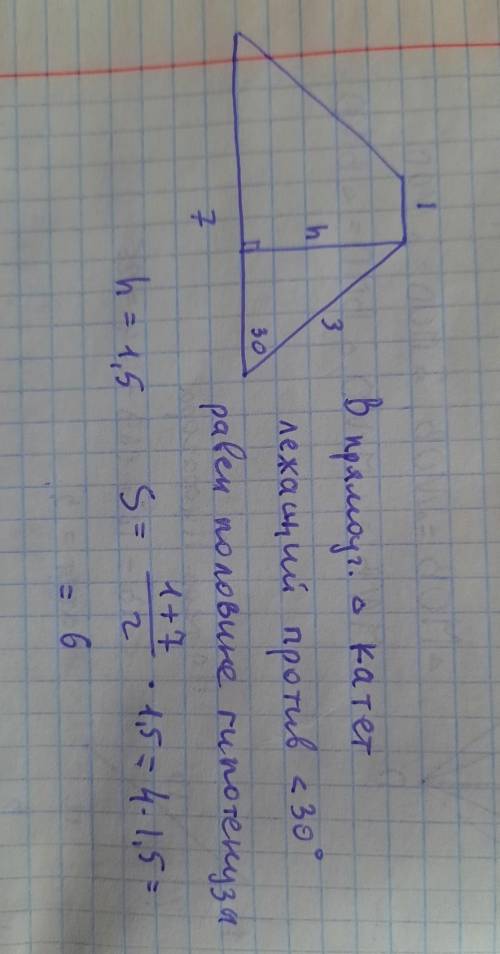 1
h
3
30
7
В прямоуг. △ катет
лежащий против <30°
равен половине гипотенуза
h = 1,5
S = 1+7/2 · 1,5 = 4·1,5 =
= 6